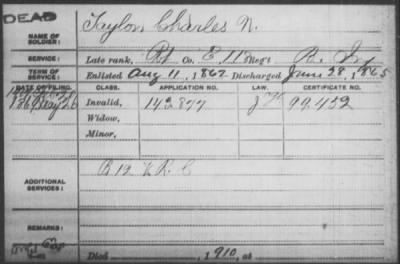 DEAD
NAME OF SOLDIER: Taylor, Charles N.
SERVICE: Late rank, Pvt Co. E, 11 Reg't R. I.
TERM OF SERVICE: Enlisted Aug 11, 1862 Discharged June 28, 1865
DATE OF FILING. CLASS. APPLICATION NO. LAW. CERTIFICATE NO.
1869 May 26 Invalid, 142877 99.452
Widow,
Minor,
ADDITIONAL SERVICES: B 19 V R C
REMARKS:
Died , 1910, at